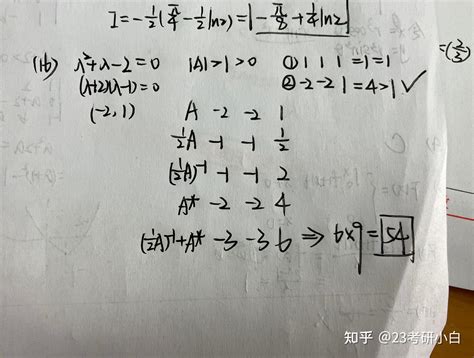 I=-½(π/4-½ln2)=-π/8+¼ln2
(16) λ²+λ-2=0 |A|>1>0 ① 1 1 1 =1=1
(λ+2)(λ-1)=0 ② -2 -2 1 =4>1 ✓
(-2,1) A -2 -2 1
½A -1 -1 ½
(½A)⁻¹ -1 -1 2
A* -2 -2 4
(½A)⁻¹+A* -3 -3 6 ⇒ 6×9=54
知乎 @23考研小白